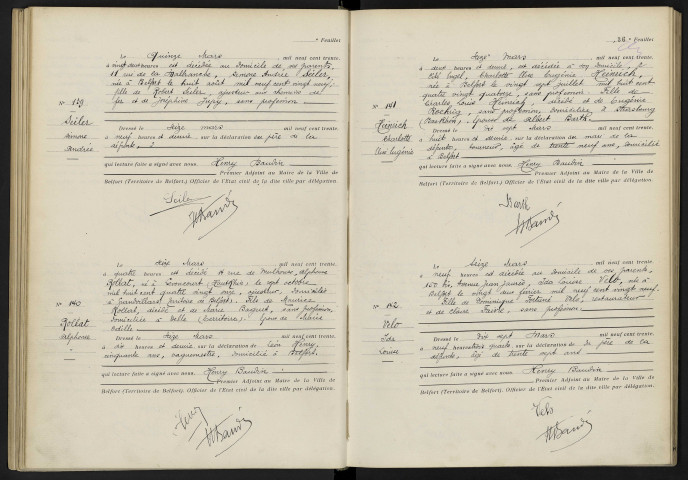 " Feuillet
Le Quinze Mars mil neuf cent trente,
à vingt heures est décédée au Domicile de ses parents,
11 rue de la Simone Andrée Seiler,
née à Belfort le huit août mil neuf cent vingt neuf,
fille de Robert Seiler, ajusteur aux chemins de
fer et de Joséphine sans profession
N° 139
Seiler
Simone
Andrée
Dressé le Seize mars mil neuf cent trente,
à neuf heures et demie, sur la déclaration du père de la
défunte
qui lecture faite a signé avec nous, Henry Baudin
Premier Adjoint au Maire de la Ville de
Belfort (Territoire de Belfort), Officier de l'Etat civil de la dite ville par délégation.
Seiler
HBaudin
Le Seize Mars mil neuf cent trente,
à quatre heures est décédé rue de Mulhouse, Alphonse
Rollat, né à (Haut-Rhin) le sept octobre
mil huit cent quatre vingt onze, domicilié
à Fils de Maurice
Rollat, décédé et de Marie sans profession,
domiciliée à Delle (Territoire). Epoux de
Odille
N° 140
Rollat
Alphonse
Dressé le Seize Mars mil neuf cent trente,
à dix heures et demie sur la déclaration de Léon Henry,
cinquante ans, domicilié à Belfort,
qui lecture faite a signé avec nous, Henry Baudin
Premier Adjoint au Maire de la Ville de
Belfort (Territoire de Belfort), Officier de l'Etat civil de la dite ville par délégation.
Henry
HBaudin
28 " Feuillet
Le Seize Mars mil neuf cent trente,
à deux heures et demie, est décédée à son domicile, 2
Charlotte Elise Eugénie Heinrich,
née à Belfort le vingt sept juillet mil huit cent
quatre vingt quatorze, sans profession. Fille de
Charles Louis Heinrich, décédé et de Eugénie
sans profession, domiciliée à Strasbourg
(Bas-Rhin). Epouse de Albert Barth.
N° 141
Heinrich
Charlotte
Elise Eugénie
Dressé le Dix sept Mars mil neuf cent trente,
à huit heures et demie, sur la déclaration du mari de la
défunte, tourneur, âgé de trente neuf ans, domicilié
à Belfort
qui lecture faite a signé avec nous, Henry Baudin
Premier Adjoint au Maire de la Ville de
Belfort (Territoire de Belfort), Officier de l'Etat civil de la dite ville par délégation.
Barth
HBaudin
Le Seize Mars mil neuf cent trente,
à neuf heures est décédée au Domicile de ses parents,
avenue Jean Jaurès, Ida Louise Velo, née à
Belfort le vingt deux février mil neuf cent vingt neuf.
Fille de Dominique Fortuné Velo, restaurateur
et de sans profession
N° 142
Velo
Ida
Louise
Dressé le Dix sept Mars mil neuf cent trente,
à neuf heures trois quarts sur la déclaration du père de la
défunte, âgé de trente sept ans
qui lecture faite a signé avec nous, Henry Baudin
Premier Adjoint au Maire de la Ville de
Belfort (Territoire de Belfort), Officier de l'Etat civil de la dite ville par délégation.
Velo
HBaudin